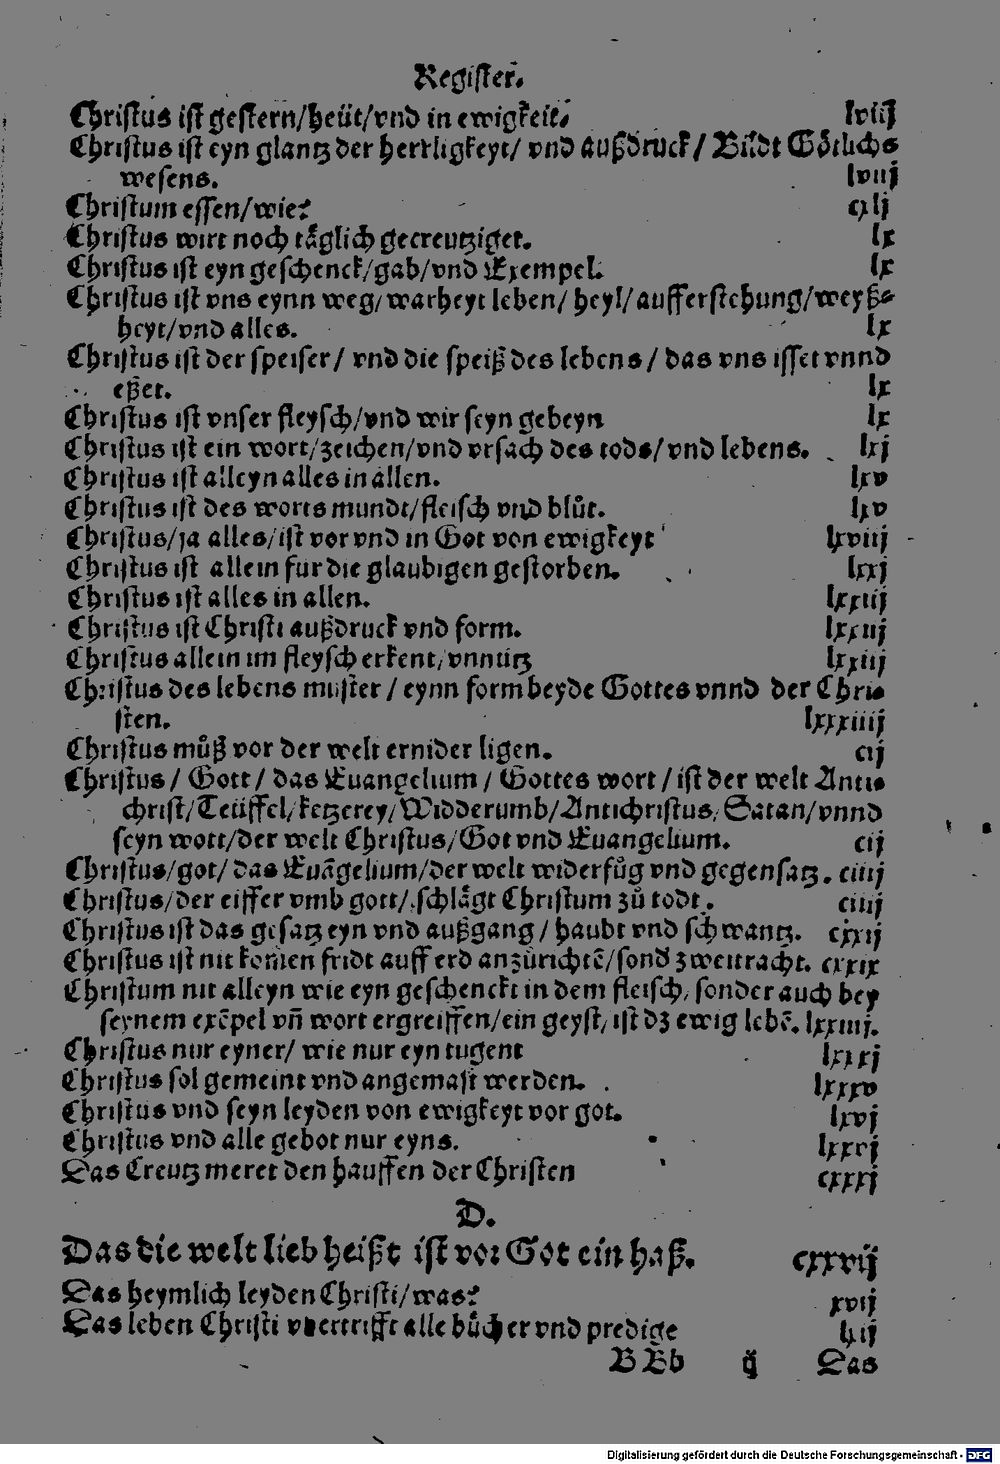 Register.
Christus ist gestern/heüt/vnd in ewigkeit. lviij
Christus ist eyn glantz der herrligkeyt/ vnd außdruck/ Bildt Götlichs
wesens. lviij
Christum essen/wie? cxlj
Christus wirt noch täglich gecreutziget. lx
Christus ist eyn geschenck/gab/vnd Exempel. lx
Christus ist vns eynn weg/warheyt leben/ heyl/aufferstehung/weyß⸗
heyt/vnd alles. lx
Christus ist der speiser/ vnd die speiß des lebens/ das vns isset vnnd
eßet. lx
Christus ist vnser fleysch/vnd wir seyn gebeyn lx
Christus ist ein wort/zeichen/vnd vrsach des tods/vnd lebens. lxj
Christus ist alleyn alles in allen. lxv
Christus ist des worts mundt/fleisch vnd blůt. lxv
Christus/ja alles/ist vor vnd in Got von ewigkeyt lxviij
Christus ist allein für die glaubigen gestorben. lxxj
Christus ist alles in allen. lxxiij
Christus ist Christi außdruck vnd form. lxxiij
Christus allein im fleysch erkent/vnnütz lxxiij
Christus des lebens muster/ eynn form beyde Gottes vnnd der Chri⸗
sten. lxxxiiij
Christus můß vor der welt ernider ligen. cij
Christus/ Gott/ das Euangelium/ Gottes wort/ist der welt Anti⸗
christ/Teüffel/ketzerey/Widderumb/Antichristus/Satan/vnnd
seyn wort/der welt Christus/Got vnd Euangelium. cij
Christus/got/ das Euãgelium/der welt widerfůg vnd gegensatz. ciiij
Christus/der eiffer vmb gott/schlägt Christum zů todt. ciiij
Christus ist das gesatz eyn vnd außgang/ haubt vnd schwantz. cxxij
Christus ist nit kom̃en fridt auff erd anzůrichtẽ/sond̃ zweitracht. cxxix
Christum nit alleyn wie eyn geschenckt in dem fleisch/sonder auch bey
seynem exẽpel vñ wort ergreiffen/ein geyst/ist dz ewig lebẽ. lxxiiij.
Christus nur eyner/ wie nur eyn tugent lxxxj
Christus sol gemeint vnd angemast werden. lxxxv
Christus vnd seyn leyden von ewigkeyt vor got. lxvj
Christus vnd alle gebot nur eyns. lxxvj
Das Creutz meret den hauffen der Christen cxxxj
D.
Das die welt lieb heißt ist vor Got ein haß. cxxvij
Das heymlich leyden Christi/was? xvij
Das leben Christi vbertrifft alle bücher vnd predige
BBb ij Das
Digitalisierung gefördert durch die Deutsche Forschungsgemeinschaft - DFG